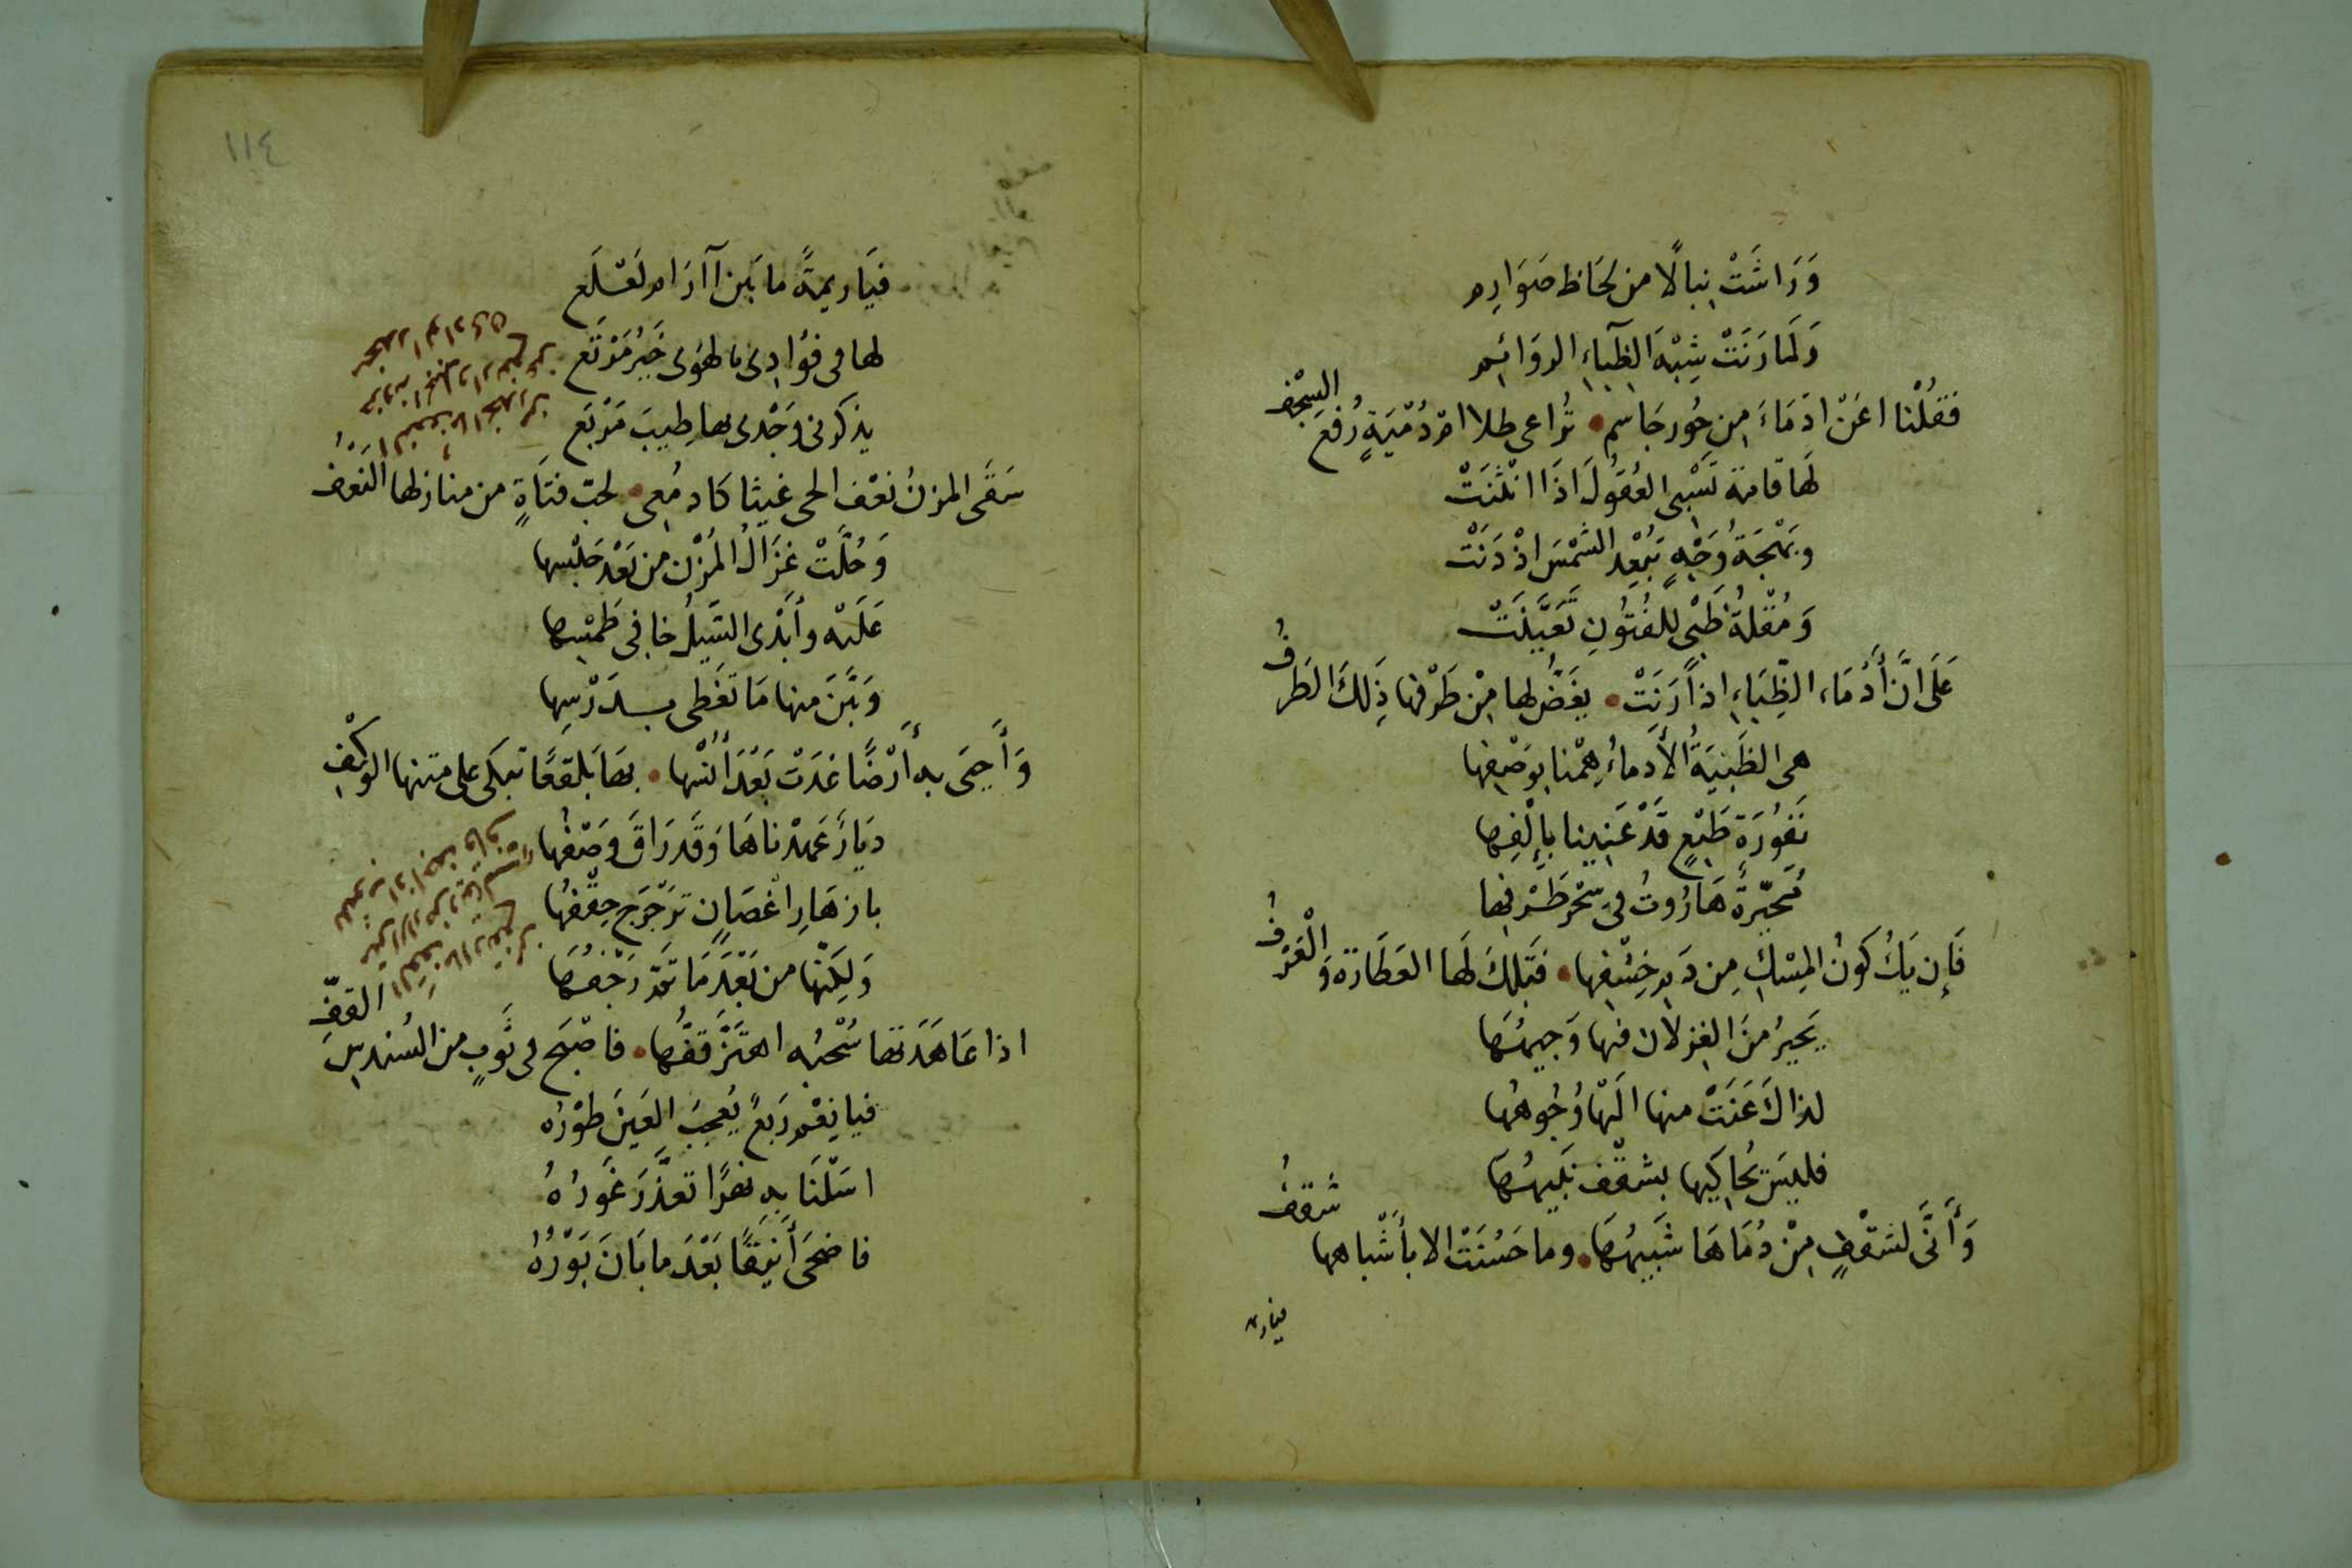 وَرَاشَتْ نِبالًا من لحَاظ صَوَارِم
وَلَمَا رَنَتْ شِبْهَ الظِبَاءِ الروَائِمِ
فَقُلْنا اعَنْ ادْمَاءَ مِن حُور جَاسِم • تُراعى طلا امْ دُمْيَةٍ رُفعَ السِجْف
لَهَا قامة تَسْبِى العُقُولَ اذَا انْثَنَتْ
وبَهْجَةُ وَجْهٍ تُبْعِد الشَمْسَ اذْ دَنَتْ
وَمُقْلَةُ ظَبْيٍ لِلفُتُونِ
عَلَى انَّ أُدْمَاءَ الظِبَاءِ اذا رَنَتْ • يغَضُّ لها مِنْ طَرْفها ذِلكَ الطَرْفُ
هى الظَبْيَةُ الأَدماءُ هِمْنا بِوَصْفِها
نَفُورَة طَبْعٍ قَدْ عَنِينا بِإلْفِها
مُحَيِّرةٌ هَارُوتُ فِى سِحْرِ طَرْفِها
فَإِن يَكُ كَونُ المِسْكِ مِن دَمِ خِشْفِها • فتِلكَ لَهَا العَطَارَة وَالْعَرْفُ
يَحيرُ مِنَ الغِزلان فيها وَجِيهُهَا
لذاكَ عَنَتْ منها الَيْهَا وُجُوهُها
فليسَ يُحاكِيها بشقْف نَبِيهُهَا
وَأَنَّى لشَقْفٍ مِنْ دُمَاهَا شَبِيهُهَا • وما حَسُنَتْ الا بأَشْباهها شقفُ
فيا ريم
١١٤
فيَا ريمةً ما بَين آرَام لَعْلَعِ
لها فى فؤادِى بالهَوى خَيْرُ مَرْتَع
يذكرنى وَجْدى بها طِيبَ مَرْبَع
سَقَى المزنُ نَعْف الحى غيثا كادمُعى • لحبّ فتَاةٍ من منازلها النَعْفُ
وَحُلَّتْ غَزَالُ المُزْن من بَعْد حَبْسِها
عَلَيْه وأبْدى السَّيلُ خافى طَمْسِها
وَبَيَّنَ منها مَا تَغَطى بِدَرْسِها
وَأَحيَى به أَرْضًا غدَتْ بَعْدَ أُنْسِها • بهَا بَلقعًا تبكى على متنها الوَكْفِ
ديَارٌ عَهِدْناهَا وَقَد رَاقَ وَصْفُها
بازهَارِ اغْصَانٍ تَرَجْرَج حِقْفُها
وَلكِنَّها من بَعْدِ مَا رَجْفُهَا
اذا عَاهَدَتها سُحْبُه اهتَزَّ قفُّها • فاصْبَح فى ثَوبٍ من السُندسِ القفّ
فيا نِعْمَ رَبعٌ يُعجِبُ العَينَ طَوْرُه
اسَلْنَا بهِ نهرًا تعذَّرَ غَورُهُ
فاضحَى أَنِيقًا بَعْدَ ما بَانَ بَوْرُهُ